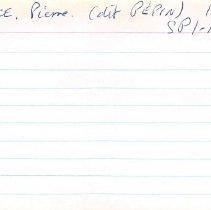 CE, Pierre. (dit PÉPIN) 1
SP1-1